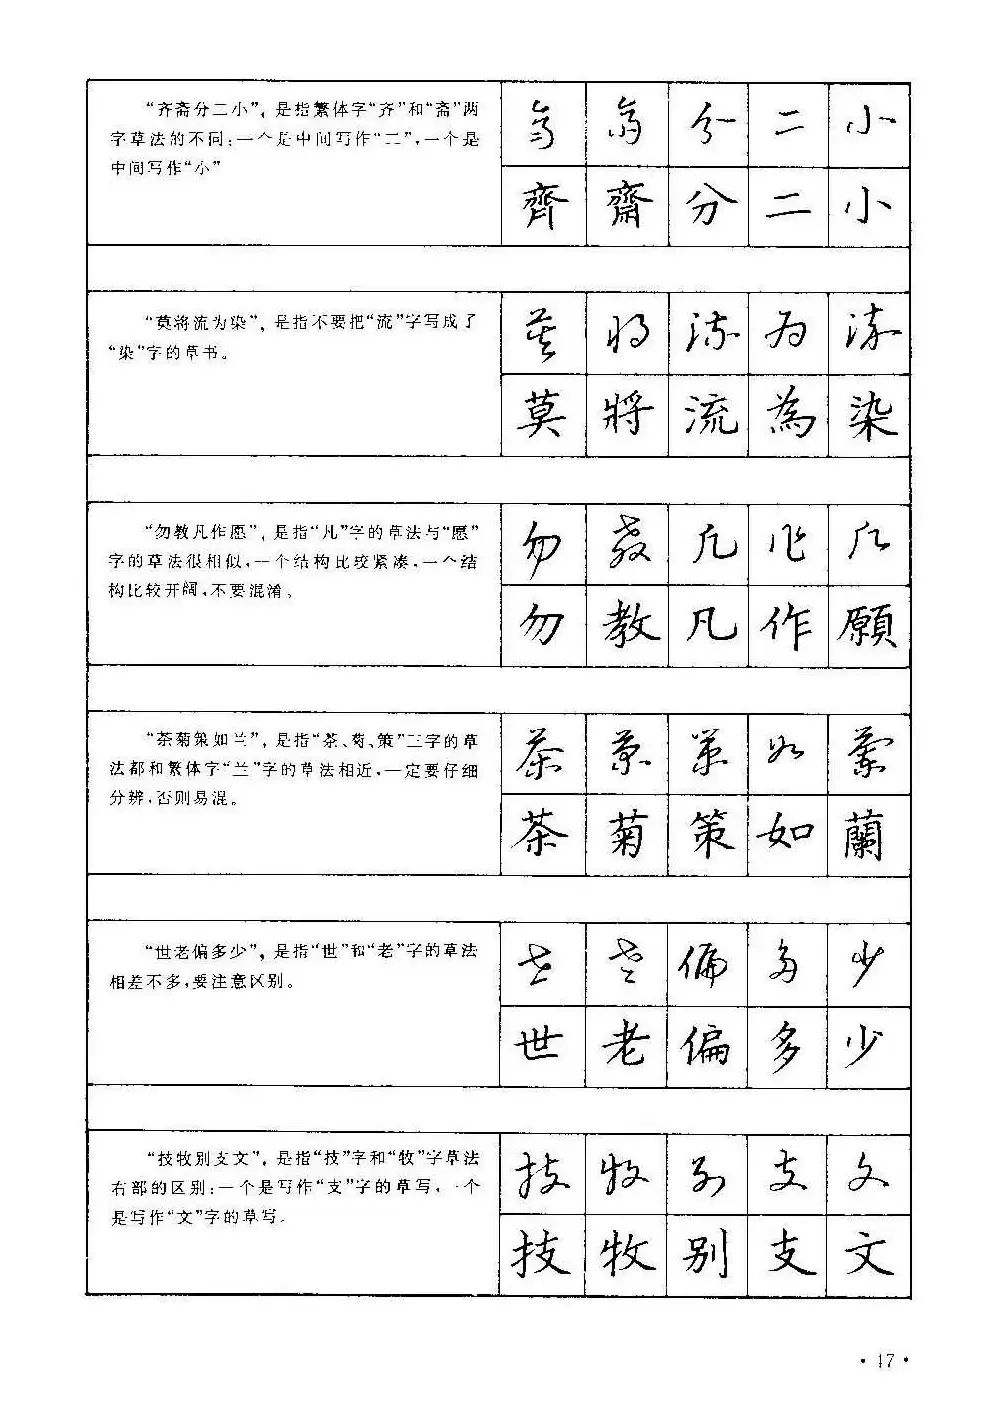 “齐斋分二小”，是指繁体字“齐”和“斋”两
字草法的不同：一个是中间写作“二”，一个是
中间写作“小”
齊 齋 分 二 小
齊 齋 分 二 小
“莫将流为染”，是指不要把“流”字写成了
“染”字的草书。
莫 將 流 為 染
莫 將 流 為 染
“勿教凡作愿”，是指“凡”字的草法与“愿”
字的草法很相似，一个结构比较紧凑，一个结
构比较开阔，不要混淆。
勿 教 凡 作 願
勿 教 凡 作 願
“茶菊策如兰”，是指“茶、菊、策”三字的草
法都和繁体字“兰”字的草法相近，一定要仔细
分辨，否则易混。
茶 菊 策 如 蘭
茶 菊 策 如 蘭
“世老偏多少”，是指“世”和“老”字的草法
相差不多，要注意区别。
世 老 偏 多 少
世 老 偏 多 少
“技牧别支文”，是指“技”字和“牧”字草法
右部的区别：一个是写作“支”字的草写，一个
是写作“文”字的草写。
技 牧 别 支 文
技 牧 别 支 文
·17·